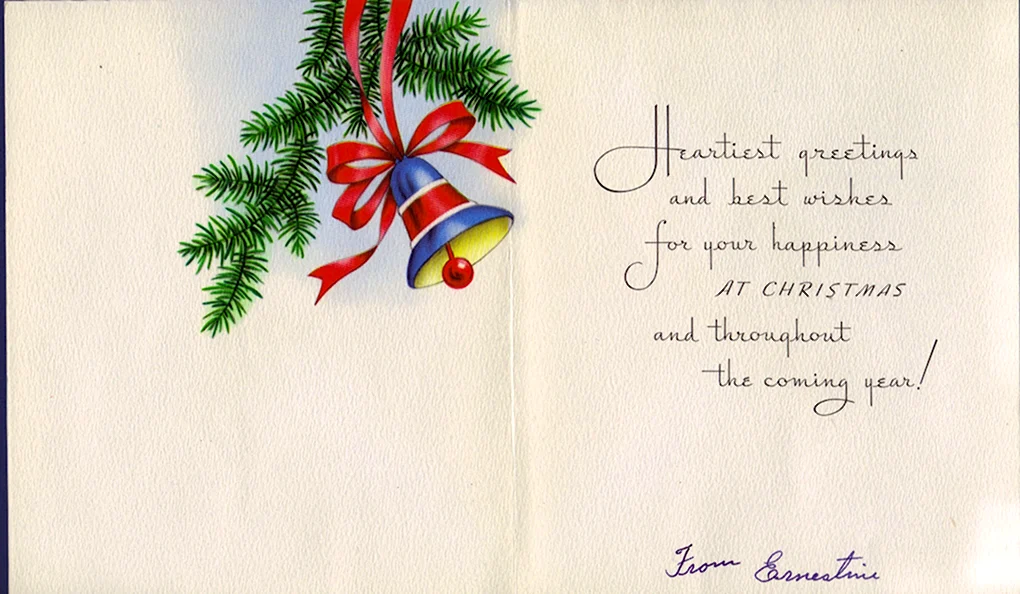 Heartiest greetings
and best wishes
for your happiness
AT CHRISTMAS
and throughout
the coming year!
From Ernestine